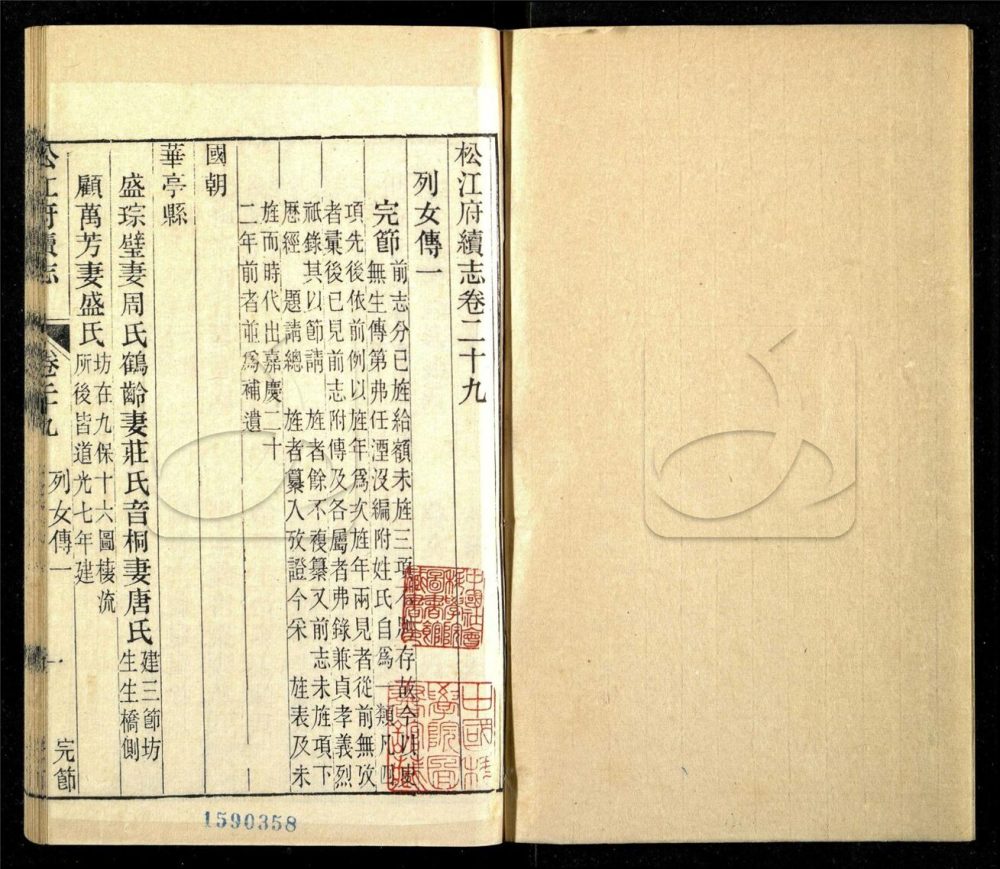 松江府續志卷二十九
列女傳一
完節
前志分已旌給額未旌三項不存故今以
無生傳第弗任湮沒編附姓氏自爲一類凡四
項先後依前例以旌年爲次旌年兩見者從前無攷
者彙後已見前志附傳及各屬者弗錄兼貞孝義烈
祇錄其以節請 旌者餘不複纂又前志未旌項下
歷經 題請總 旌者纂入攷證今采 旌表及未
旌而時代出嘉慶二十
二年前者並爲補遺
國朝
華亭縣
盛琮璧妻周氏鶴齡妻莊氏音桐妻唐氏
建三節坊
生生橋側
顧萬芳妻盛氏
坊在九保十六圖棲流
所後皆道光七年建
松江府續志 卷二十九 列女傳一 一 完節
中國社會科學院圖書館藏書
1590358